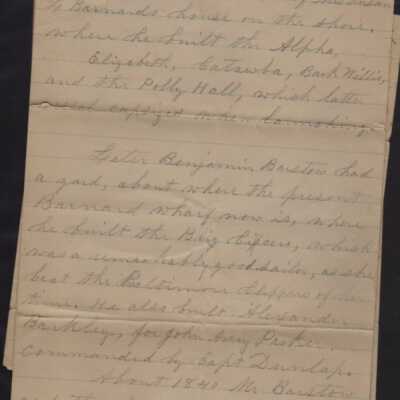 to Barnards house on the shore,
where he built the Alpha,
Elizabeth, Catawba, Bark Nellie,
and the Polly Hall, which latter
vessel capsized when launching.
Later Benjamin Barstow had
a yard, about where the present
Barnard wharf now is, where
he built the Brig Cicero, which
was a remarkably good sailor, as she
beat the Baltimore Clippers of her
time. He also built Alexander
Barkley, for John Avery Parker
Commanded by Capt Dunlap.
About 1840 Mr. Barstow